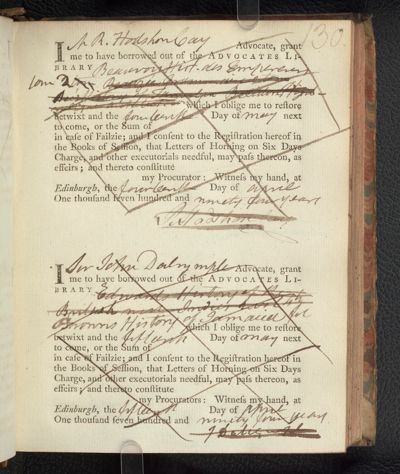 130.
I M. R. Hodshon Cay Advocate, grant
me to have borrowed out of the ADVOCATES LI-
BRARY Beauvais Hist. des Empereurs
tom 2
which I oblige me to restore
betwixt and the fourteenth Day of may next
to come, or the Sum of
in case of Failzie; and I consent to the Registration hereof in
the Books of Session, that Letters of Horning on Six Days
Charge, and other executorials needful, may pass thereon, as
effeirs; and thereto constitute
my Procurator: Witness my hand, at
Edinburgh, the fourteenth Day of april
One thousand seven hundred and ninety four years
R. Hodshon Cay
I Sir John Dalrymple Advocate, grant
me to have borrowed out of the ADVOCATES LI-
BRARY Edwards History of the
British
Browns History of Jamaica fol
which I oblige me to restore
betwixt and the fifteenth Day of may next
to come, or the Sum of
in case of Failzie; and I consent to the Registration hereof in
the Books of Session, that Letters of Horning on Six Days
Charge, and other executorials needful, may pass thereon, as
effeirs; and thereto constitute
my Procurators: Witness my hand, at
Edinburgh, the fifteenth Day of April
One thousand seven hundred and ninety four years
J Dalrymple